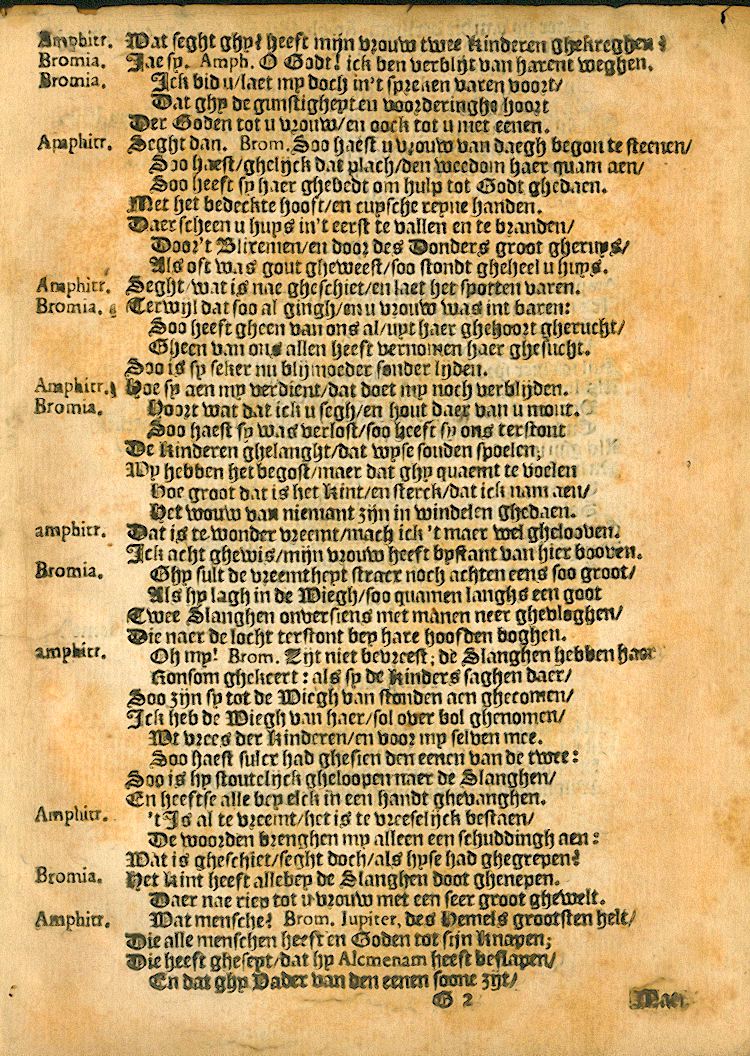 Amphitr. Wat seght ghy? heeft mijn vrouw twee kinderen ghekreghen?
Bromia. Jae sy. Amph. O Godt! ick ben verblijt van harent weghen.
Bromia. Ick bid u/laet my doch in't spreken varen voort/
Dat ghy de gunstigheyt en voorderinghe hoort
Der Goden tot u vrouw/en oock tot u met eenen.
Amphitr. Seght dan. Brom. Soo haest u vrouw van daegh begon te steenen/
Soo haest/ghelijck dat plach/den weedom haer quam aen/
Soo heeft sy haer ghebedt om hulp tot Godt ghedaen.
Met het bedeckte hooft/en cuysche reyne handen.
Daer scheen u huys in't eerst te vallen en te branden/
Door't Blixemen/en door des Donders groot gheruys/
Als oft was gout gheweest/soo stondt gheheel u huys.
Amphitr. Seght/wat is nae gheschiet/en laet het spotten varen.
Bromia. Terwijl dat soo al gingh/en u vrouw was int baren:
Soo heeft gheen van ons al/uyt haer ghehoort gherucht/
Gheen van ons allen heeft vernomen haer ghesucht.
Soo is sy seker nu blijmoeder sonder lijden.
Amphitr. Hoe sy aen my verdient/dat doet my noch verblijden.
Bromia. Hoort wat dat ick u segh/en hout daer van u mont.
Soo haest sy was verlost/soo heeft sy ons terstont
De kinderen ghelanght/dat wyse souden spoelen;
Wy hebben het begost/maer dat ghy quaemt te voelen
Hoe groot dat is het kint/en sterck/dat ick nam aen/
Het wouw van niemant zijn in windelen ghedaen.
amphitr. Dat is te wonder vreemt/mach ick 't maer wel ghelooven.
Ick acht ghewis/mijn vrouw heeft bystant van hier booven.
Bromia. Ghy sult de vreemtheyt stracx noch achten eens soo groot/
Als hy lagh in de Wiegh/soo quamen langhs een goot
Twee Slanghen onversiens met manen neer ghevloghen/
Die naer de locht terstont bey hare hoofden boghen.
amphitr. Oh my! Brom. Zijt niet bevreest; de Slanghen hebben haer
Konsom ghekeert: als sy de kinders saghen daer/
Soo zijn sy tot de Wiegh van stonden aen ghecomen/
Ick heb de Wiegh van haer/sol over bol ghenomen/
Wt vrees der kinderen/en voor my selven mee.
Soo haest sulcx had ghesien den eenen van de twee:
Soo is hy stoutelijck gheloopen naer de Slanghen/
En heeftse alle bey elck in een handt ghevanghen.
Amphitr. 't Is al te vreemt/het is te vreeselijck bestaen/
De woorden brenghen my alleen een schuddingh aen:
Wat is gheschiet/seght doch/als hyse had ghegrepen?
Bromia. Het kint heeft allebey de Slanghen doot ghenepen.
Daer nae riep tot u vrouw met een seer groot ghewelt.
Amphitr. Wat mensche? Brom. Iupiter, des Hemels grootsten helt/
Die alle menschen heeft en Goden tot sijn knapen;
Die heeft gheseyt/dat hy Alcmenam heeft beslapen/
En dat ghy Vader van den eenen soone zijt/
G 2 Maer